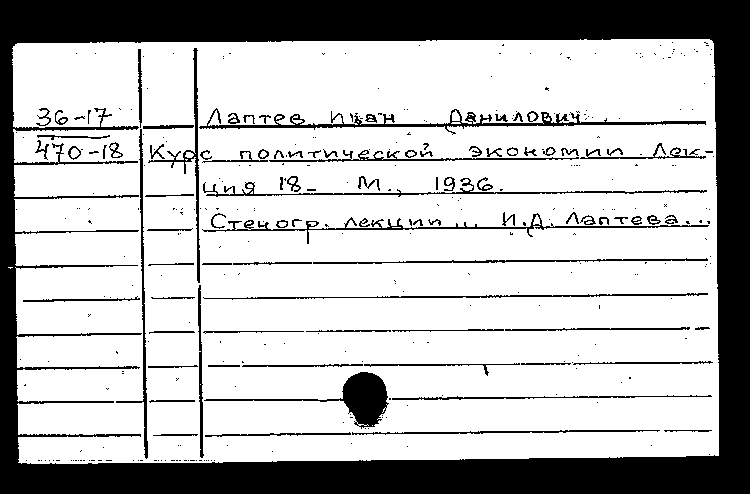 36-17 Лаптев Иван Данилович.
470-18 Курс политической экономии Лек-
ция 18- М., 1936.
Стеногр. лекции... И.Д. Лаптева...